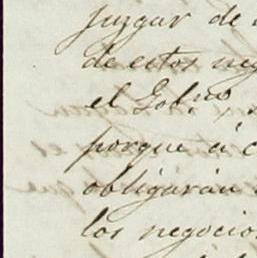 juzgar de
de estos neg
el Gob.no
porque á c
obligarán
los negocios